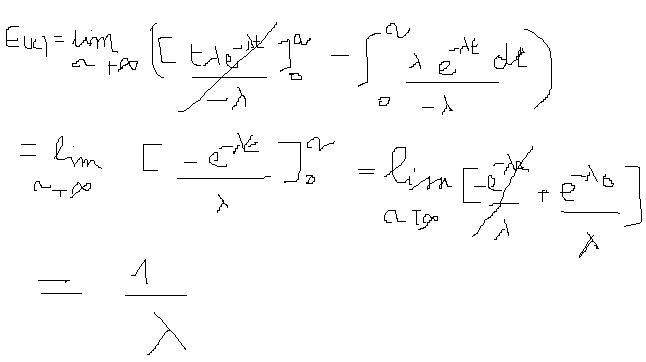 E(x) = lim a→+∞ ([tλe^{-λt}/-λ]_0^a - ∫_0^a λe^{-λt}/-λ dt)
= lim a→+∞ [-e^{-λt}/λ]_0^a = lim a→+∞ [-e^{-λa}/λ + e^{-λ0}/λ]
= 1/λ